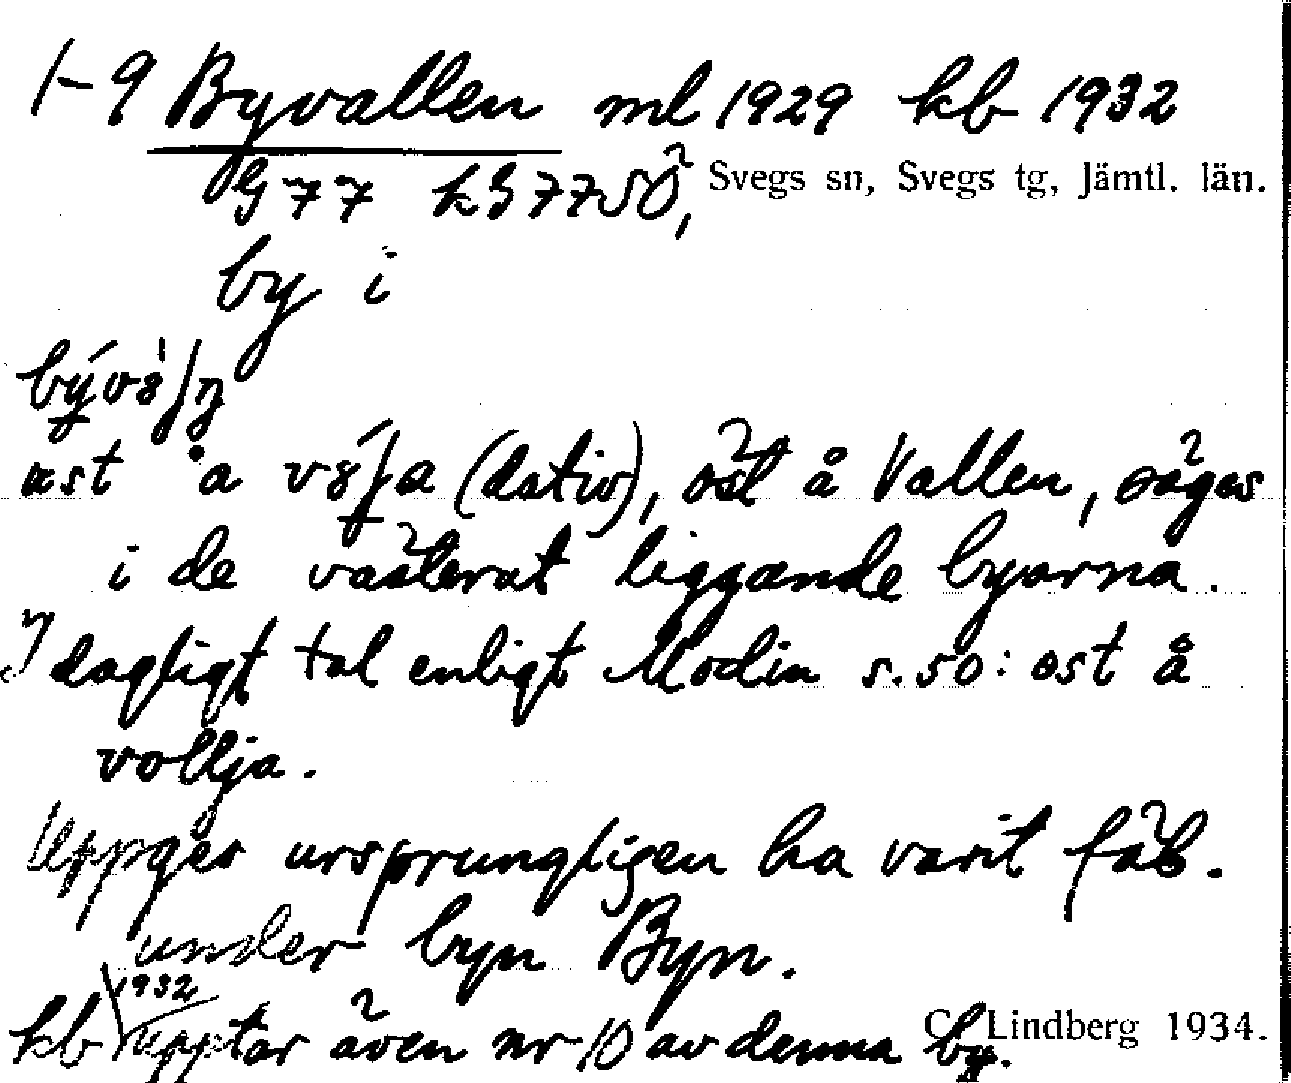 1-9 Byvallen ml 1929 kb 1932
G 77 k G 77 SÖ, Svegs sn, Svegs tg, Jämtl. län.
by i
ast å (dativ), öst å Vallen, säges
i de västerut liggande byarna.
I dagligt tal enligt Modin s. 50: ost å
vollja.
Uppges ursprungligen ha varit fäb.
under byn Byn.
kb 1932 upptar även nr 10 av denna by.
C. Lindberg 1934.